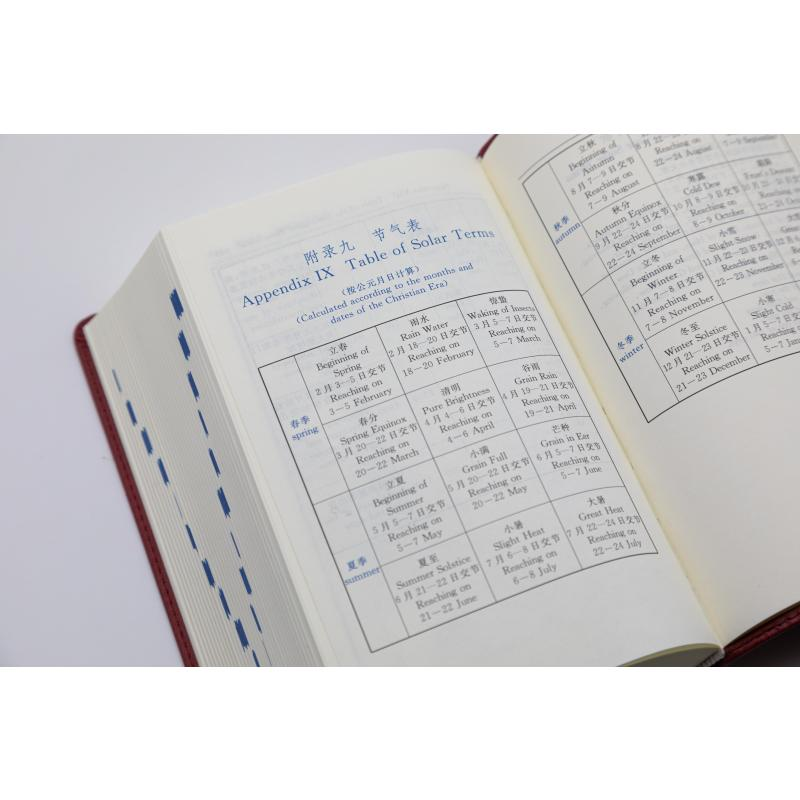 附录九 节气表
Appendix IX Table of Solar Terms
(按公元月日计算)
(Calculated according to the months and
dates of the Christian Era)
春季
spring
立春
Beginning of
Spring
2月3—5日交节
Reaching on
3—5 February
雨水
Rain Water
2月18—20日交节
Reaching on
18—20 February
惊蛰
Waking of Insects
3月5—7日交节
Reaching on
5—7 March
春分
Spring Equinox
3月20—22日交节
Reaching on
20—22 March
清明
Pure Brightness
4月4—6日交节
Reaching on
4—6 April
谷雨
Grain Rain
4月19—21日交节
Reaching on
19—21 April
夏季
summer
立夏
Beginning of
Summer
5月5—7日交节
Reaching on
5—7 May
小满
Grain Full
5月20—22日交节
Reaching on
20—22 May
芒种
Grain in Ear
6月5—7日交节
Reaching on
5—7 June
夏至
Summer Solstice
6月21—22日交节
Reaching on
21—22 June
小暑
Slight Heat
7月6—8日交节
Reaching on
6—8 July
大暑
Great Heat
7月22—24日交节
Reaching on
22—24 July
秋季
autumn
立秋
Beginning of
Autumn
8月7—9日交节
Reaching on
7—9 August
Reaching on
22—24 August
7—9 September
秋分
Autumn Equinox
9月22—24日交节
Reaching on
22—24 September
寒露
Cold Dew
10月8—9日交节
Reaching on
8—9 October
Reaching on
23—24 October
冬季
winter
立冬
Beginning of
Winter
11月7—8日交节
Reaching on
7—8 November
小雪
Slight Snow
11月22—23日交节
Reaching on
22—23 November
冬至
Winter Solstice
12月21—23日交节
Reaching on
21—23 December
小寒
Slight Cold
1月5—7日交节
Reaching on
5—7